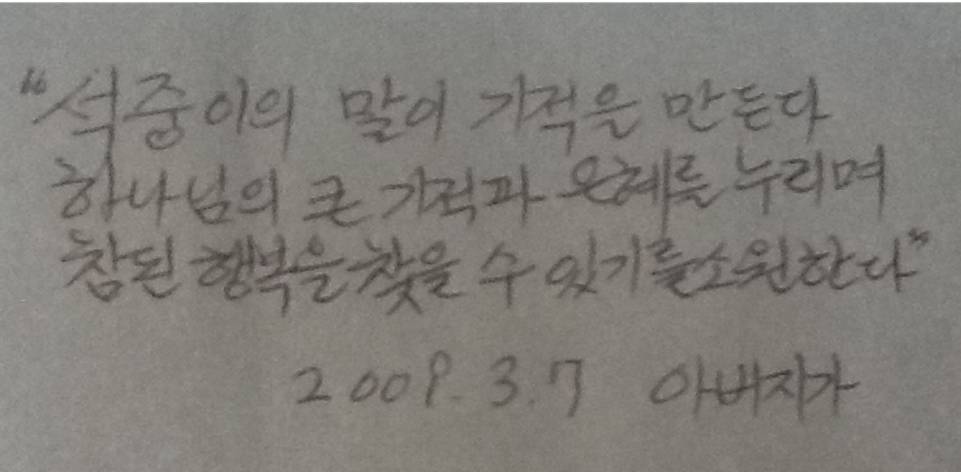 “석중이의 말이 기적을 만든다
하나님의 큰 기적과 은혜를 누리며
참된 행복을 찾을 수 있기를 소원한다”
2009. 3. 7 아버지가